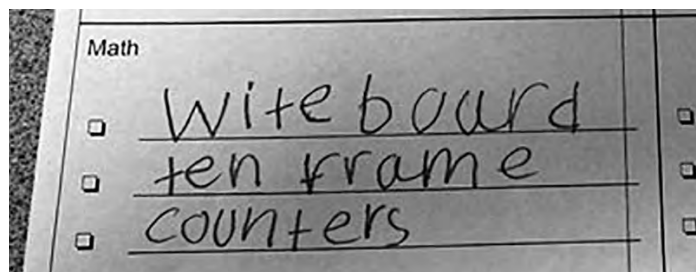 Math
Witeboard
ten frame
counters